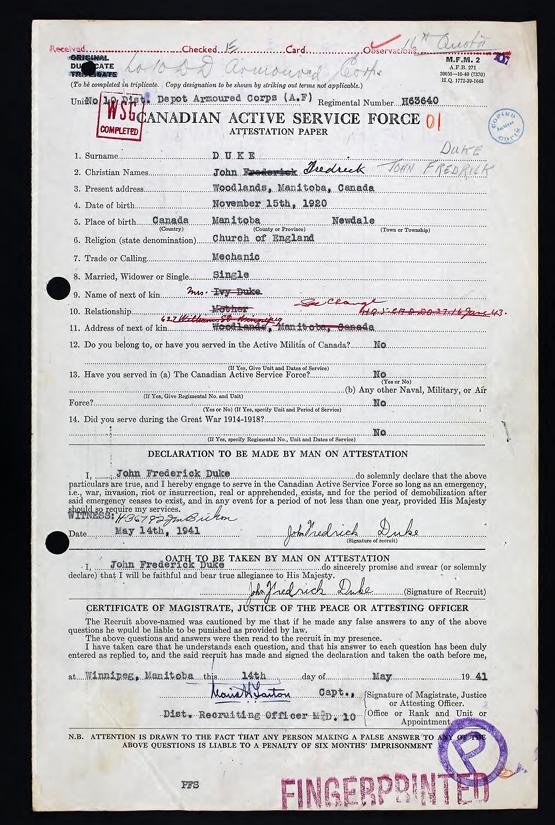 Received Checked Card Observations 16th Quota
ORIGINAL
DUPLICATE
TRIPLICATE
M.F.M. 2
A.F.B. 271
H.Q. 1772-39-1665
(To be completed in triplicate. Copy designation to be shown by striking out terms not applicable.)
Unit No 10 Dist. Depot Armoured Corps (A.F) Regimental Number H63640
WSG
COMPLETED
CANADIAN ACTIVE SERVICE FORCE 01
ATTESTATION PAPER
DUKE
JOHN FREDRICK
1. Surname DUKE
2. Christian Names John Frederick Fredrick
3. Present address Woodlands, Manitoba, Canada
4. Date of birth November 15th, 1920
5. Place of birth Canada Manitoba Newdale
(Country) (County or Province) (Town or Township)
6. Religion (state denomination) Church of England
7. Trade or Calling Mechanic
8. Married, Widower or Single Single
9. Name of next of kin Mrs. Ivy Duke
See Change
10. Relationship Mother
627 William St. Winnipeg
11. Address of next of kin Woodlands, Manitoba, Canada
12. Do you belong to, or have you served in the Active Militia of Canada? No
(If Yes, Give Unit and Dates of Service)
13. Have you served in (a) The Canadian Active Service Force? No
(Yes or No)
(If Yes, Give Regimental No. and Unit) (b) Any other Naval, Military, or Air
Force? No
(Yes or No) (If Yes, specify Unit and Period of Service)
14. Did you serve during the Great War 1914-1918?
No
(If Yes, specify Regimental No., Unit and Dates of Service)
DECLARATION TO BE MADE BY MAN ON ATTESTATION
I, John Frederick Duke do solemnly declare that the above
particulars are true, and I hereby engage to serve in the Canadian Active Service Force so long as an emergency,
i.e., war, invasion, riot or insurrection, real or apprehended, exists, and for the period of demobilization after
said emergency ceases to exist, and in any event for a period of not less than one year, provided His Majesty
should so require my services.
WITNESS:
Date May 14th, 1941 John Fredrick Duke
(Signature of recruit)
OATH TO BE TAKEN BY MAN ON ATTESTATION
I, John Frederick Duke do sincerely promise and swear (or solemnly
declare) that I will be faithful and bear true allegiance to His Majesty.
John Fredrick Duke (Signature of Recruit)
CERTIFICATE OF MAGISTRATE, JUSTICE OF THE PEACE OR ATTESTING OFFICER
The Recruit above-named was cautioned by me that if he made any false answers to any of the above
questions he would be liable to be punished as provided by law.
The above questions and answers were then read to the recruit in my presence.
I have taken care that he understands each question, and that his answer to each question has been duly
entered as replied to, and the said recruit has made and signed the declaration and taken the oath before me,
at Winnipeg, Manitoba this 14th day of May 1941
Capt., (Signature of Magistrate, Justice
or Attesting Officer.
Dist. Recruiting Officer M.D. 10 (Office or Rank and Unit or
Appointment.
N.B. ATTENTION IS DRAWN TO THE FACT THAT ANY PERSON MAKING A FALSE ANSWER TO ANY OF THE
ABOVE QUESTIONS IS LIABLE TO A PENALTY OF SIX MONTHS' IMPRISONMENT
P
PFS
FINGERPRINTED